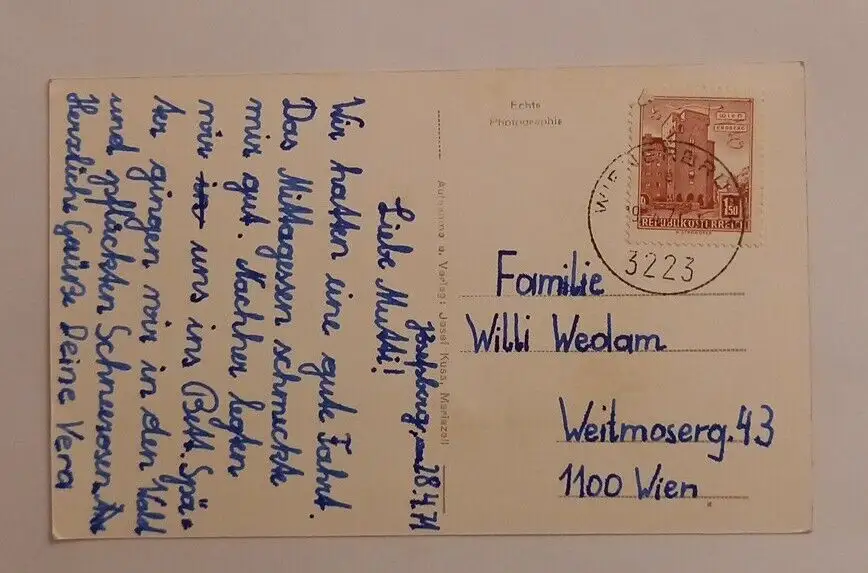 Josefsberg, am 28.4.71
Liebe Mutti!
Wir hatten eine gute Fahrt.
Das Mittagessen schmeckte
mir gut. Nachher legten
wir uns ins Bett. Spä-
ter gingen wir in den Wald
und pflückten Schneerosen.
Herzliche Grüße Deine Vera
Autnahme u. Verlag: Josef Kuss, Mariazell
Echte
Photographie
WIEN
ERDBERG
1.50
REPUBLIK ÖSTERREICH
3223
Familie
Willi Wedam
Weitmoserg. 43
1100 Wien